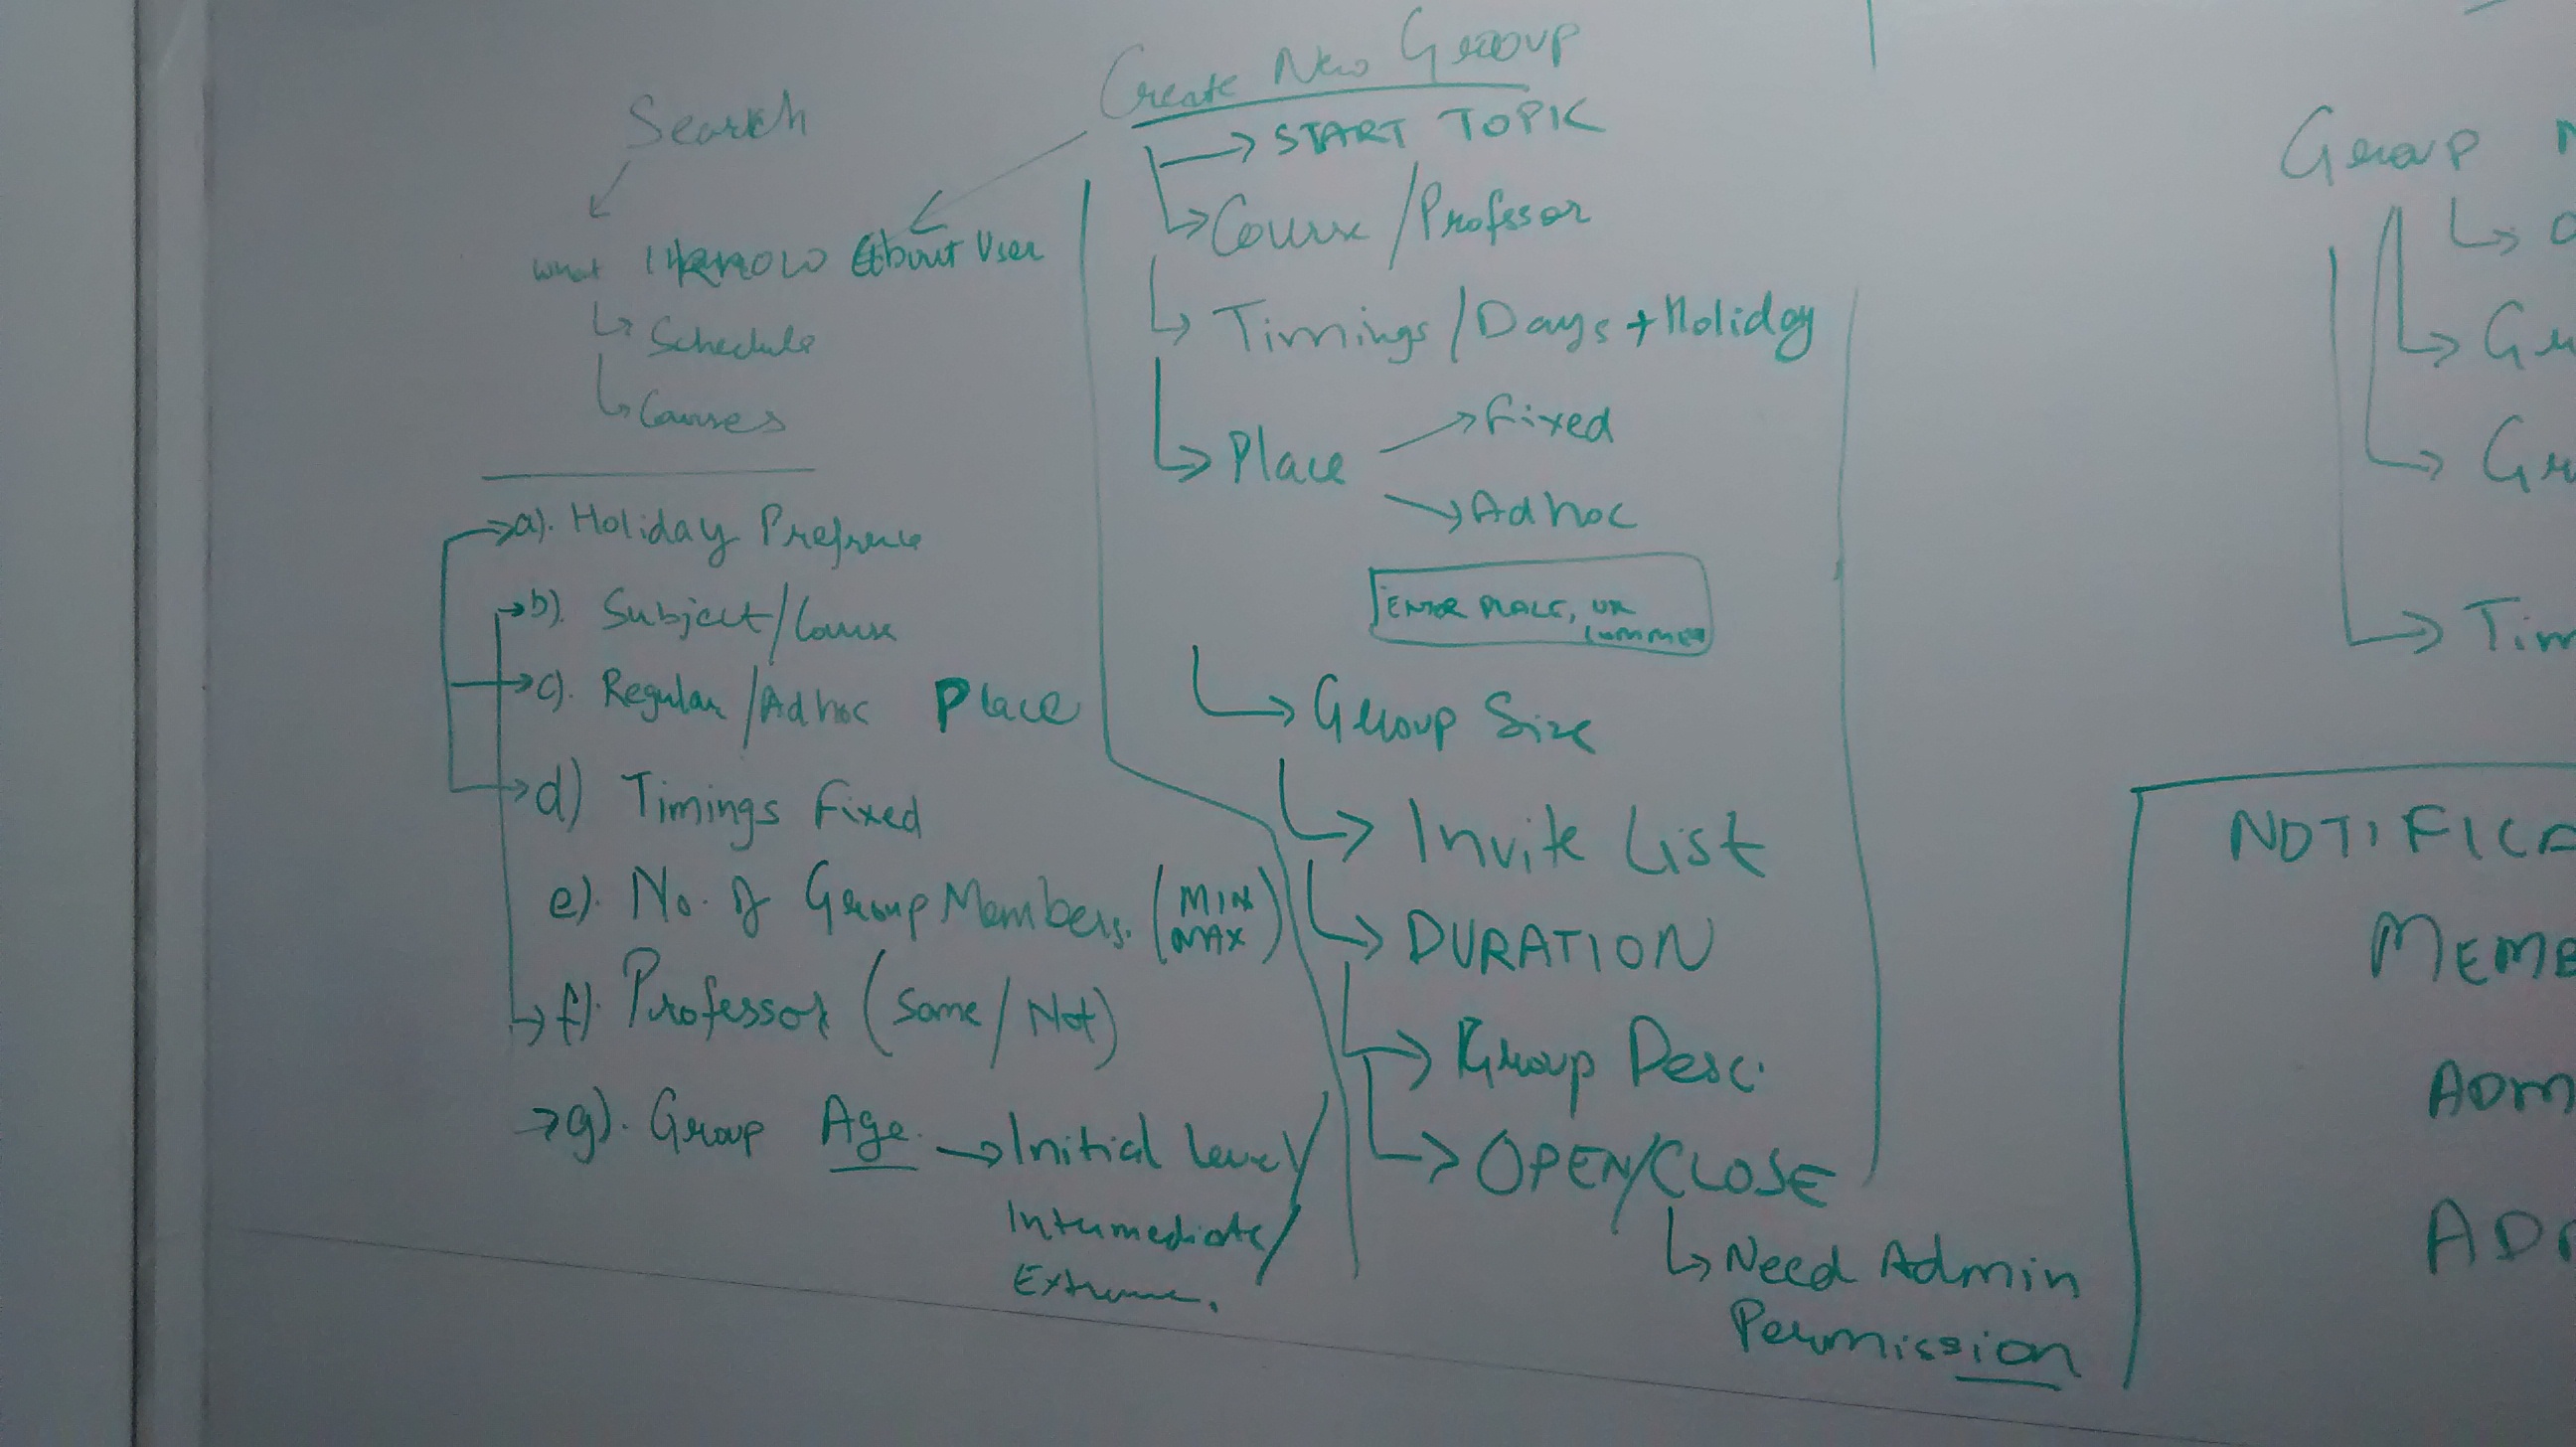 Search
What I know About User
Schedule
Courses
a). Holiday Prefrence
b). Subject/Course
c). Regular/Adhoc Place
d) Timings Fixed
e). No. of Group Members. (MIN MAX)
f). Professor (Same/Not)
g). Group Age. → Initial level/
Intermediate/
Extreme.
Create New Group
START TOPIC
Course/Professor
Timings/Days + Holiday
Place
Fixed
Adhoc
ENTER PLACE, OR
Group Size
Invite List
DURATION
Group Desc.
OPEN/CLOSE
Need Admin
Permission
Group
Gr
Gr
Tim
NOTIFICA
MEMB
ADM
AD